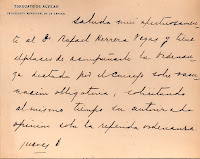 TORCUATO DE ALVEAR
INTENDENTE MUNICIPAL DE LA CAPITAL
saluda muy afectuosamen
te al Dr Rafael Herrera Vegas y tiene
el placer de acompañarle la Ordenan
za dictada por el Concejo sobre vacu
nacion obligatoria, solicitando
al mismo tiempo su autorizada
opinion sobre la referida ordenanza
jueves 6